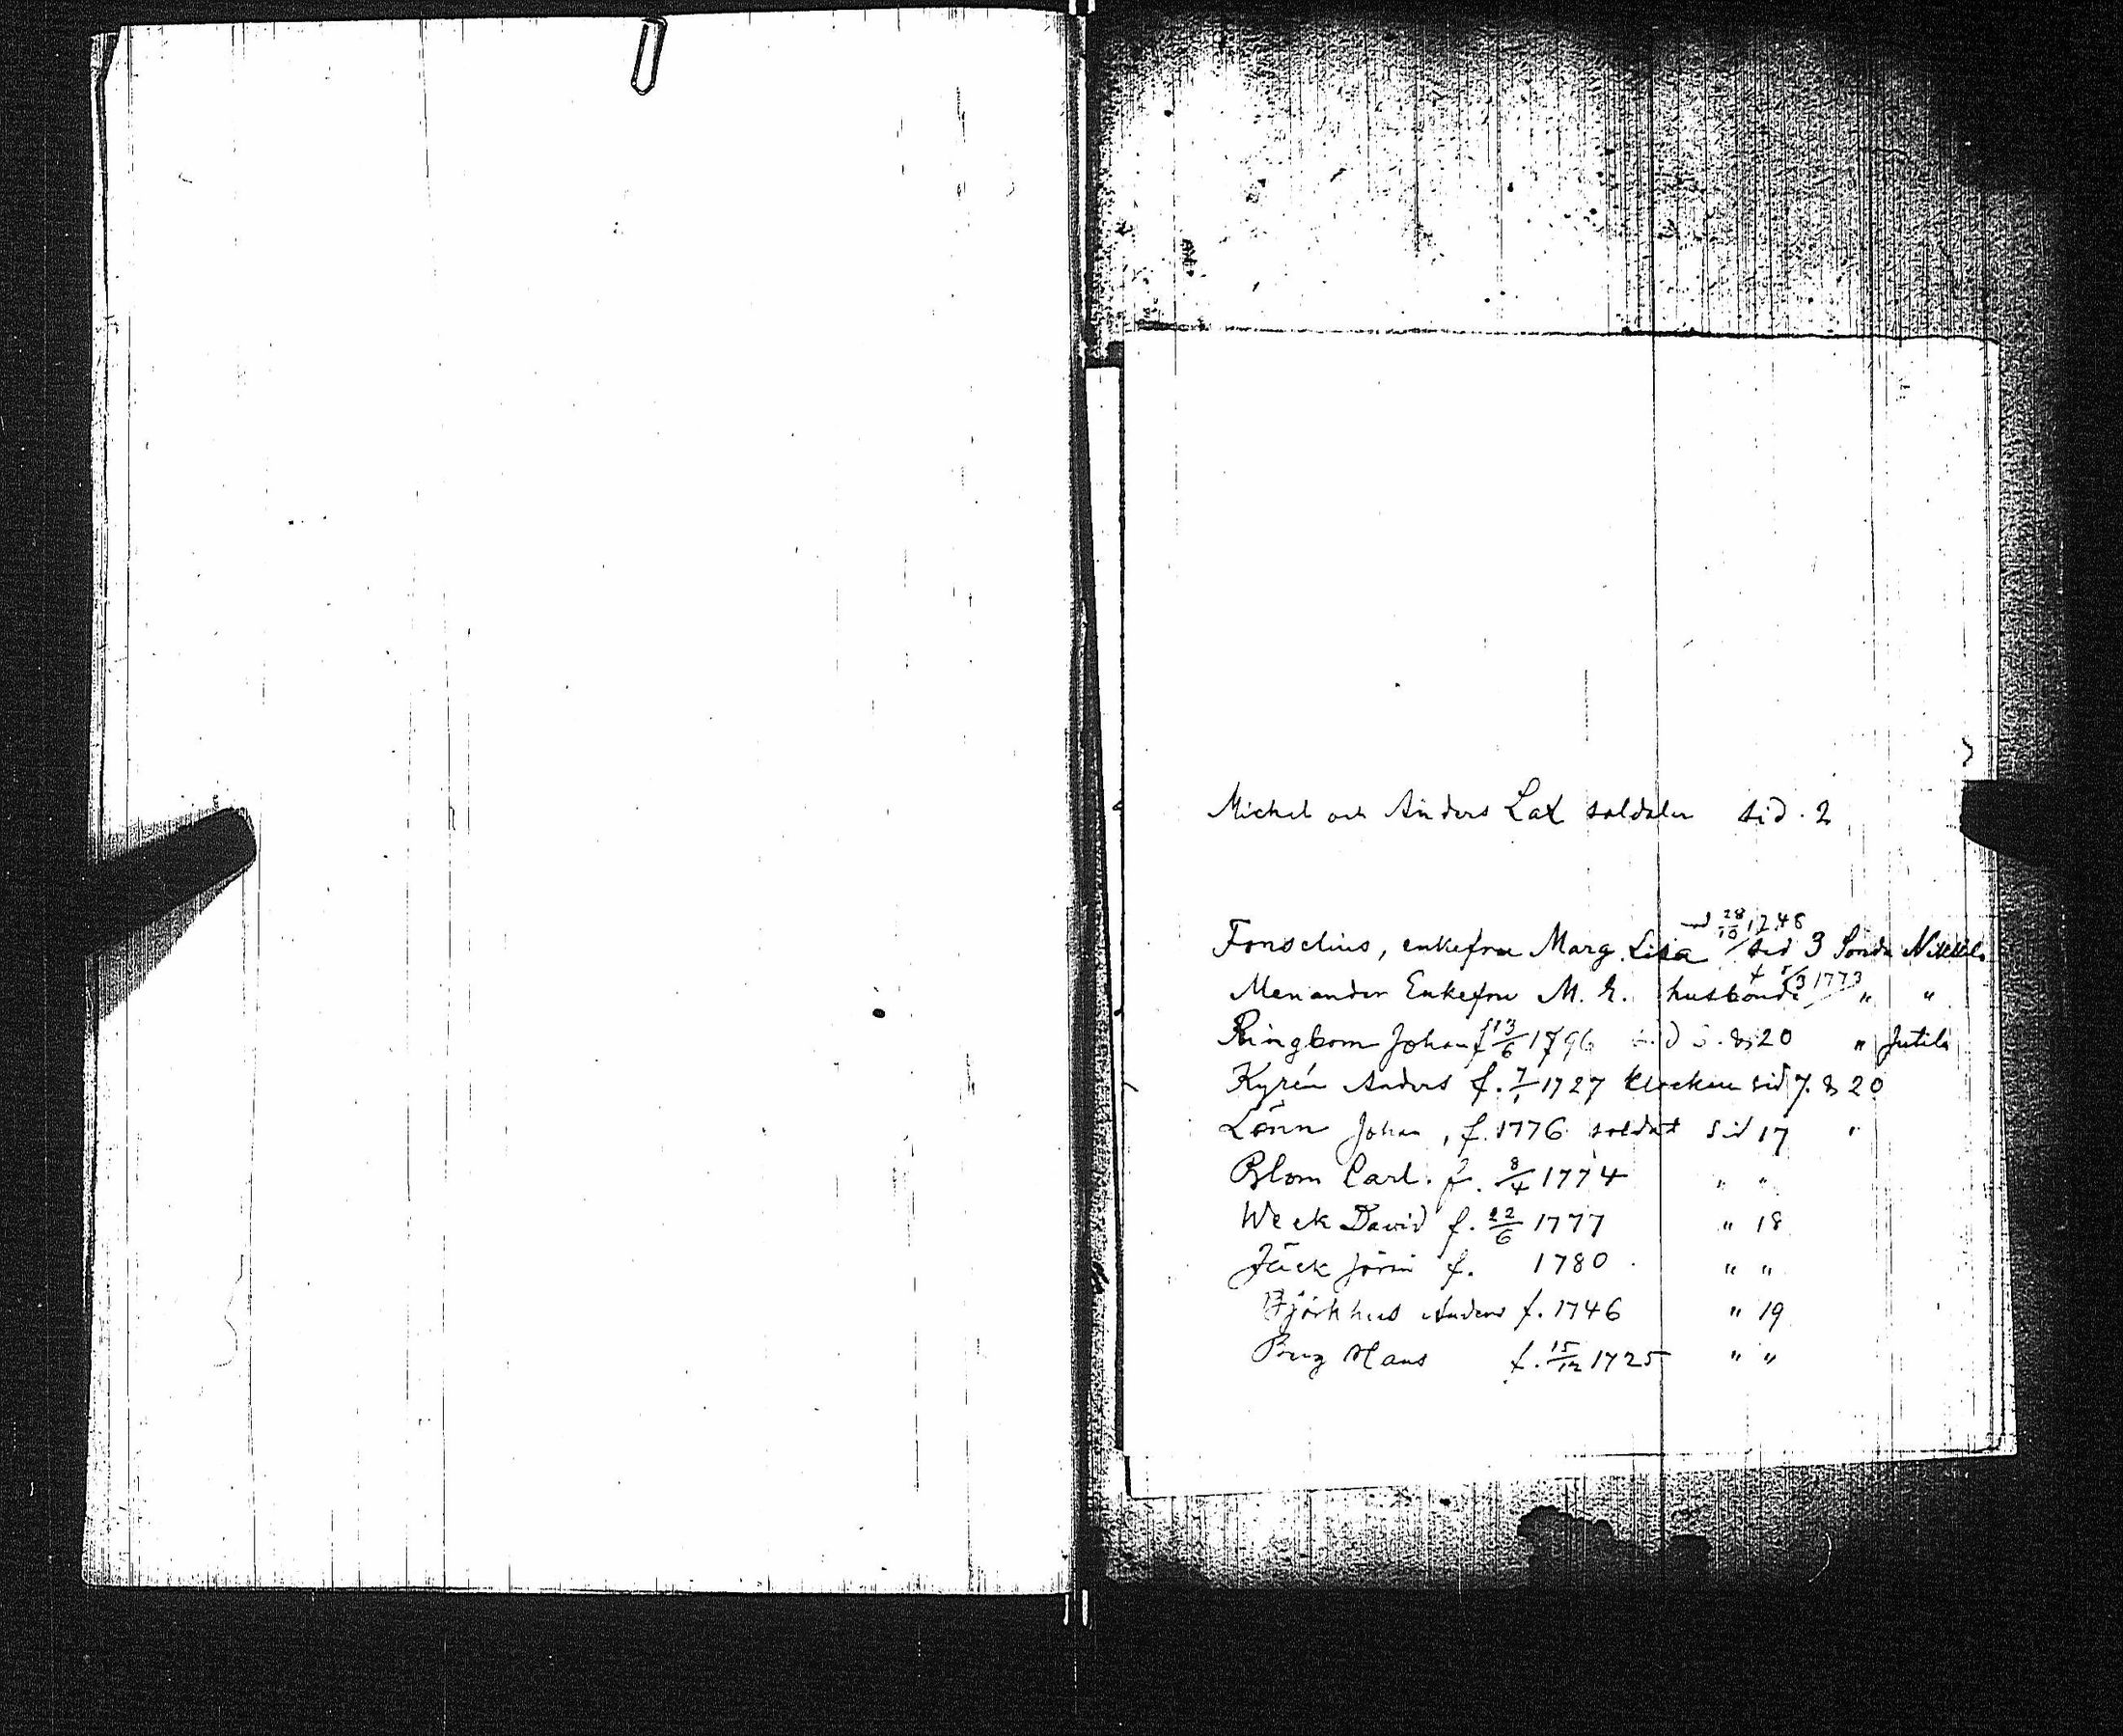 Michel och Anders Lax soldater sid. 2
28/10 1748
Fonselius, enkefru Marg. Lisa sid 3 Sonda Nikkilä
† 5/3 1773
Menander Enkefru M. E. husbonde " "
Ringbom Johan f 13/6 1796 sid 5. & 20 " Jutila
Kyrén Anders f. 7/1 1727 klockare sid 7. & 20
Lönn Johan, f. 1776 soldat sid 17 "
Blom Carl. f. 8/4 1774 " "
Week David f. 22/6 1777 " 18
Jäck Jöran f. 1780. " "
Björkhus Anders f. 1746 " 19
Hans f. 15/12 1725 " "